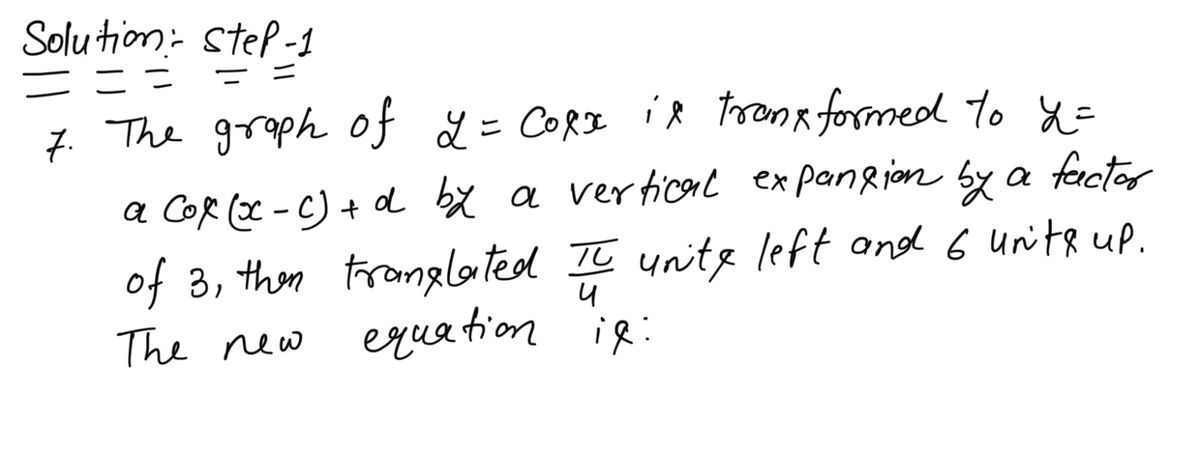 Solution:- Step-1
7. The graph of y = Cosx is transformed to y=
a Cos(x-c)+d by a vertical expansion by a factor
of 3, then translated π/4 units left and 6 units up.
The new equation is: